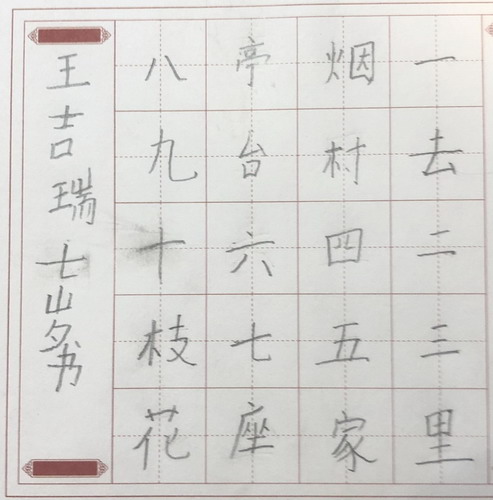 一去二三里
烟村四五家
亭台六七座
八九十枝花
王吉瑞